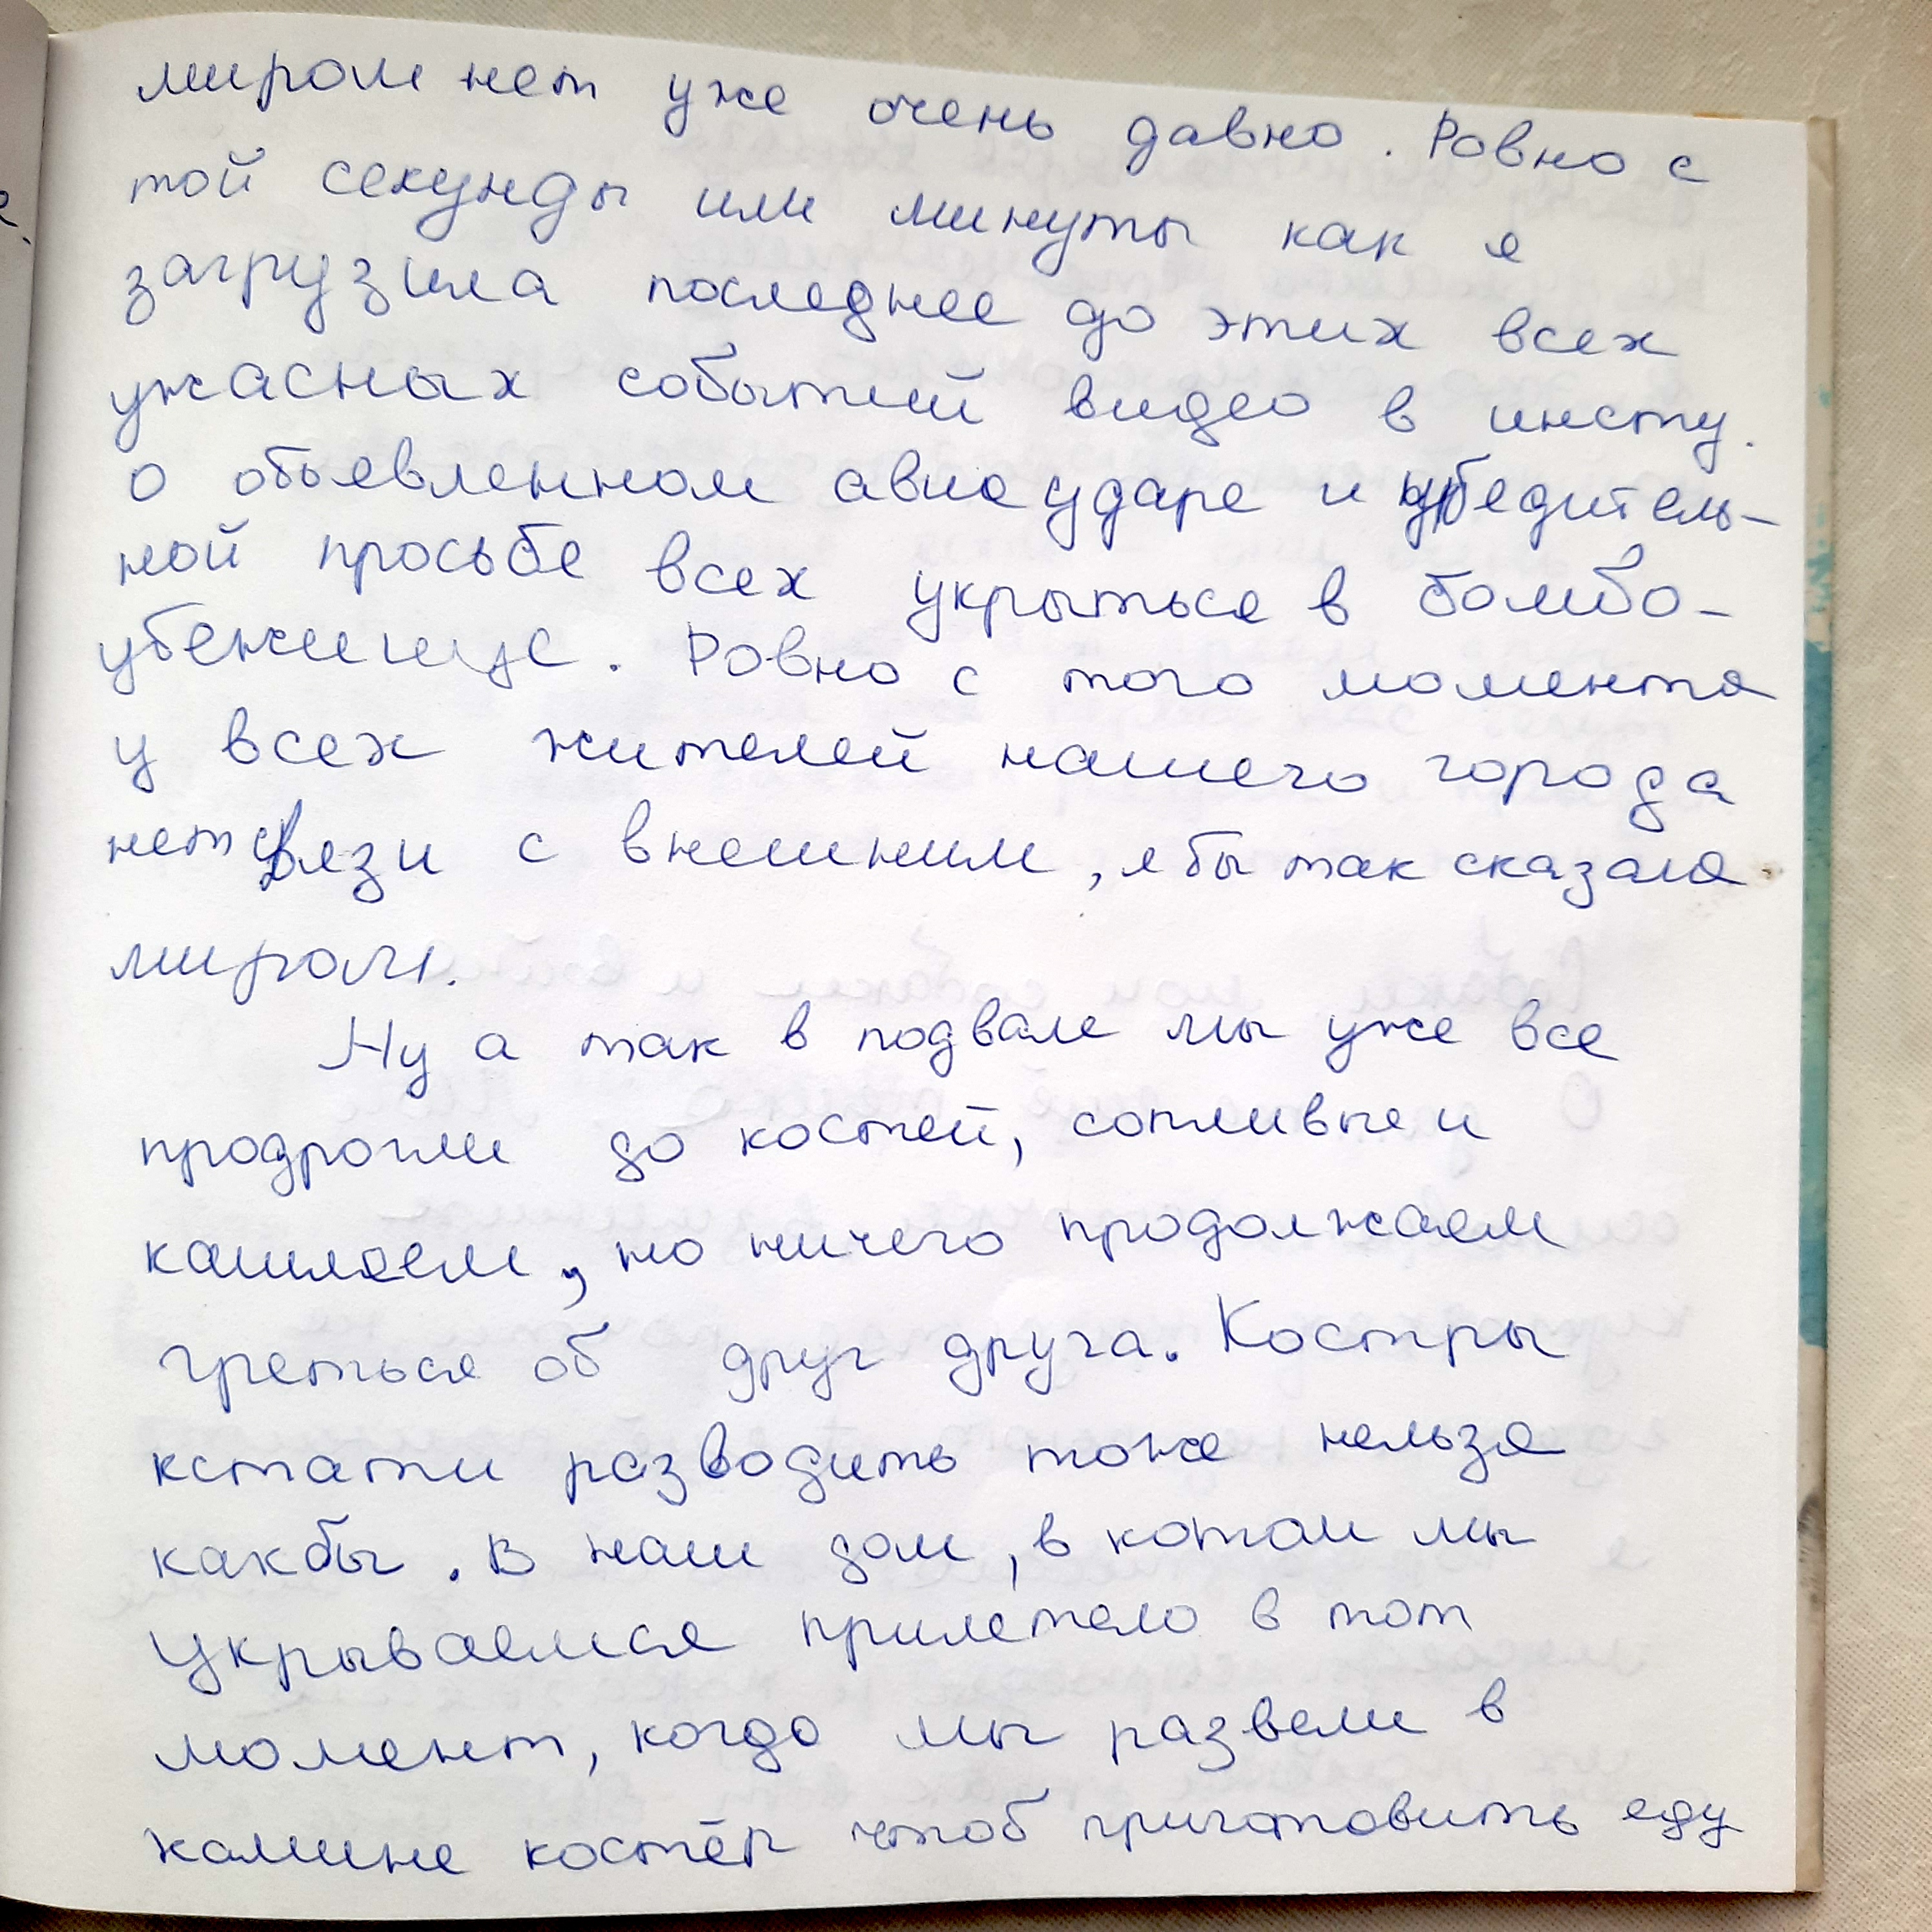 миром нет уже очень давно. Ровно с
той секунды или минуты как я
загрузила последнее до этих всех
ужасных событий видео в инсту.
О обьевленном авиоударе и убедитель-
ной просьбе всех укрыться в бомбо-
убежище. Ровно с того момента
у всех жителей нашего города
нет связи с внешним, я бы так сказала
миром.
Ну а так в подвале мы уже все
продрогли до костей, сопливые и
кашляем, но ничего продолжаем
греться об друг друга. Костры
кстати разводить тоже нельзя
какбы. В наш дом, в котом мы
укрываемся прилетело в тот
момент, когда мы развели в
камине костёр чтоб приготовить еду